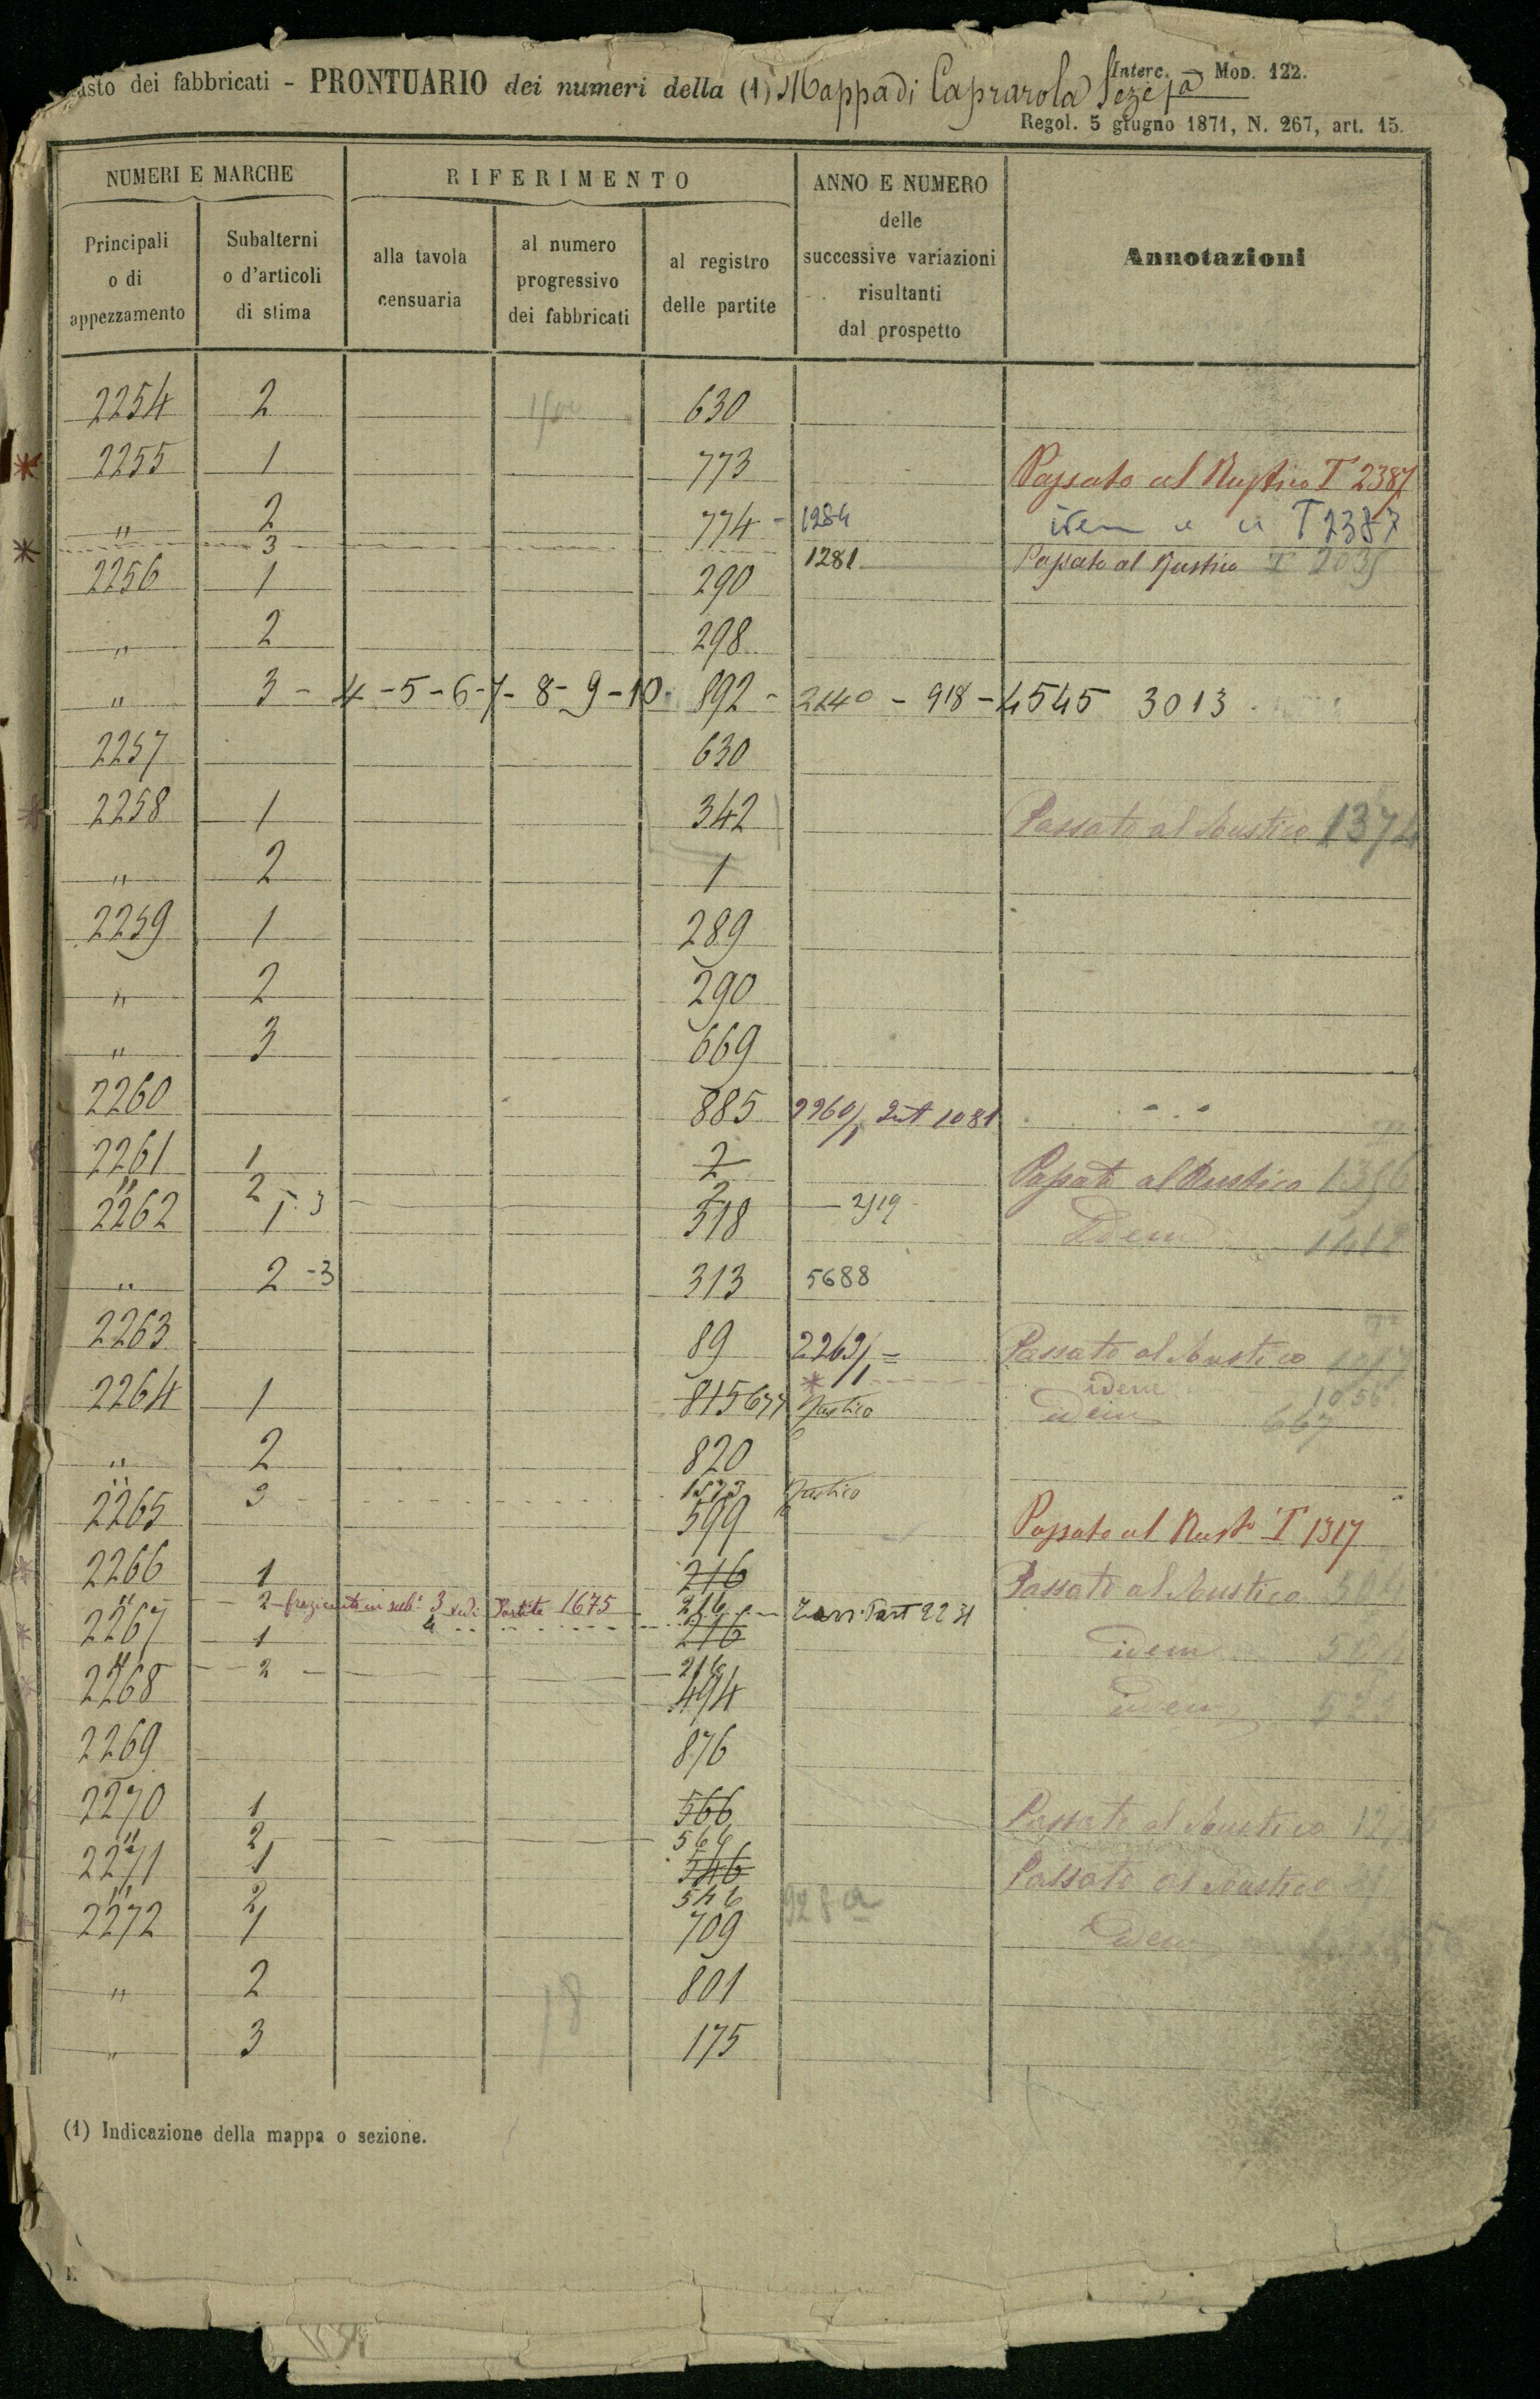 asto dei fabbricati - PRONTUARIO dei numeri della (1) Mappa di Caprarola Sez.e
Interc. - Mod. 122.
Regol. 5 giugno 1871, N. 267, art. 15.
NUMERI E MARCHE RIFERIMENTO ANNO E NUMERO delle successive variazioni risultanti dal prospetto Annotazioni
Principali o di appezzamento Subalterni o d'articoli di stima alla tavola censuaria al numero progressivo dei fabbricati al registro delle partite
2254 2 630
* 2255 1 773 Passato al Rustico T 2387
" 2 774 - 1284 idem T 2387
* 3 1281 Passato al Rustico T
2256 1 290
" 2 298
" 3 - 4 - 5 - 6 - 7 - 8 - 9 - 10 892 - 2240 - 918 - 4545 3013
2257 630
* 2258 1 342 Passato al Rustico 1374
" 2 1
2259 1 289
" 2 290
" 3 669
2260 885 2260/1 1081
2261 1 2 Passato al Rustico
" 2 2
2262 1 518 2519 Idem 1412
" 2 - 3 313 5688
2263 89 2263/1 = Passato al Rustico
* idem 1056
2264 1 815 677 Rustico idem 667
" 2 820
" 3 1573 Rustico
2265 599 Passato al Rusto T 1317
* 2266 1 216 Passato al Rustico
" 2 - frazionato in sub. 3 vedi Partita 1675 216 Part 2231
4
* 2267 1 216 idem
" 2 216
* 2268 494 idem
2269 876
* 2270 1 566 Passato al Rustico
" 2 566
2271 1 546 Passato al Rustico
" 2 546 928
* 2272 1 709 Idem
" 2 18 801
" 3 175
(1) Indicazione della mappa o sezione.